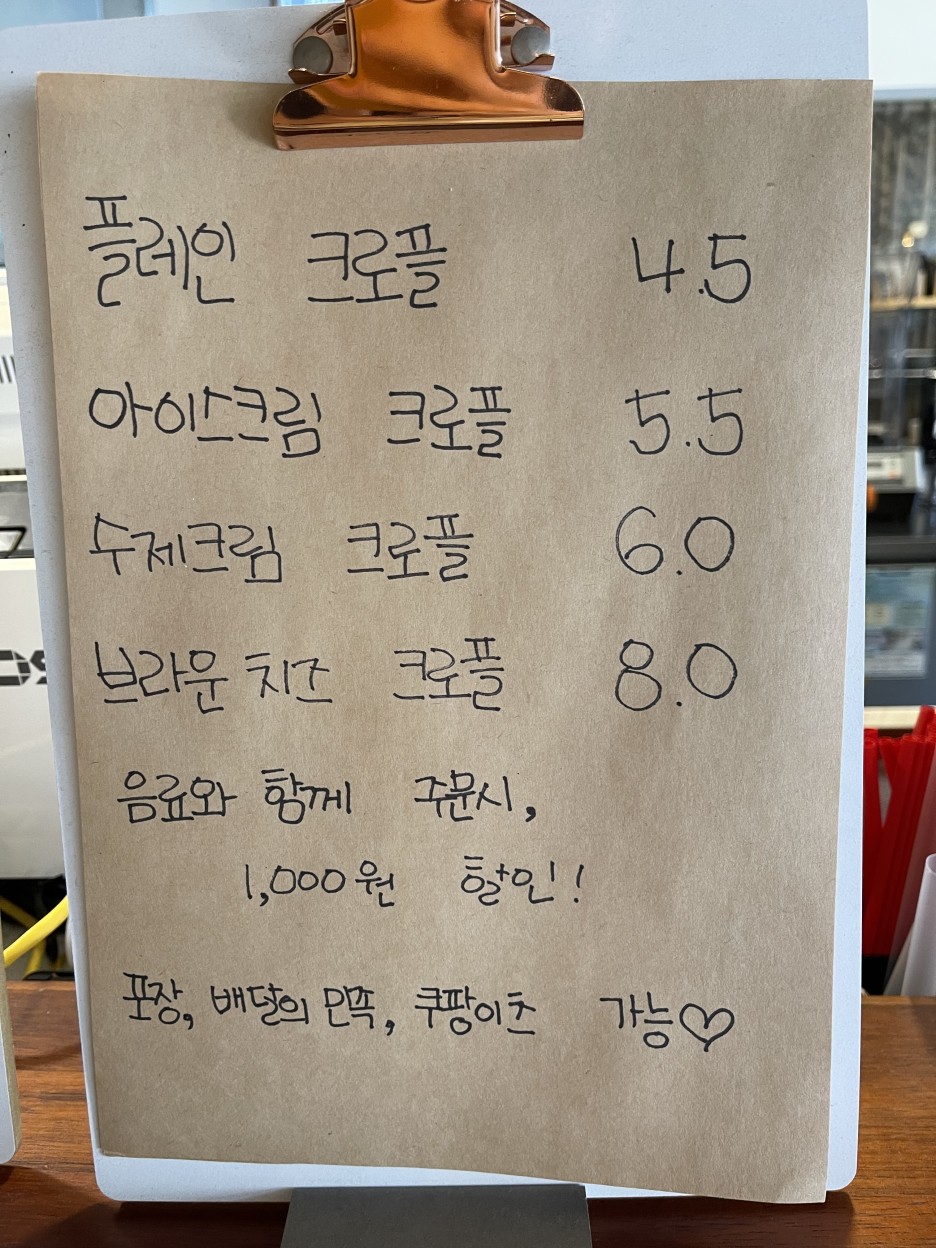 플레인 크로플 4.5
아이스크림 크로플 5.5
수제크림 크로플 6.0
브라운 치즈 크로플 8.0
음료와 함께 주문시,
1,000원 할인!
포장, 배달의 민족, 쿠팡이츠 가능♡